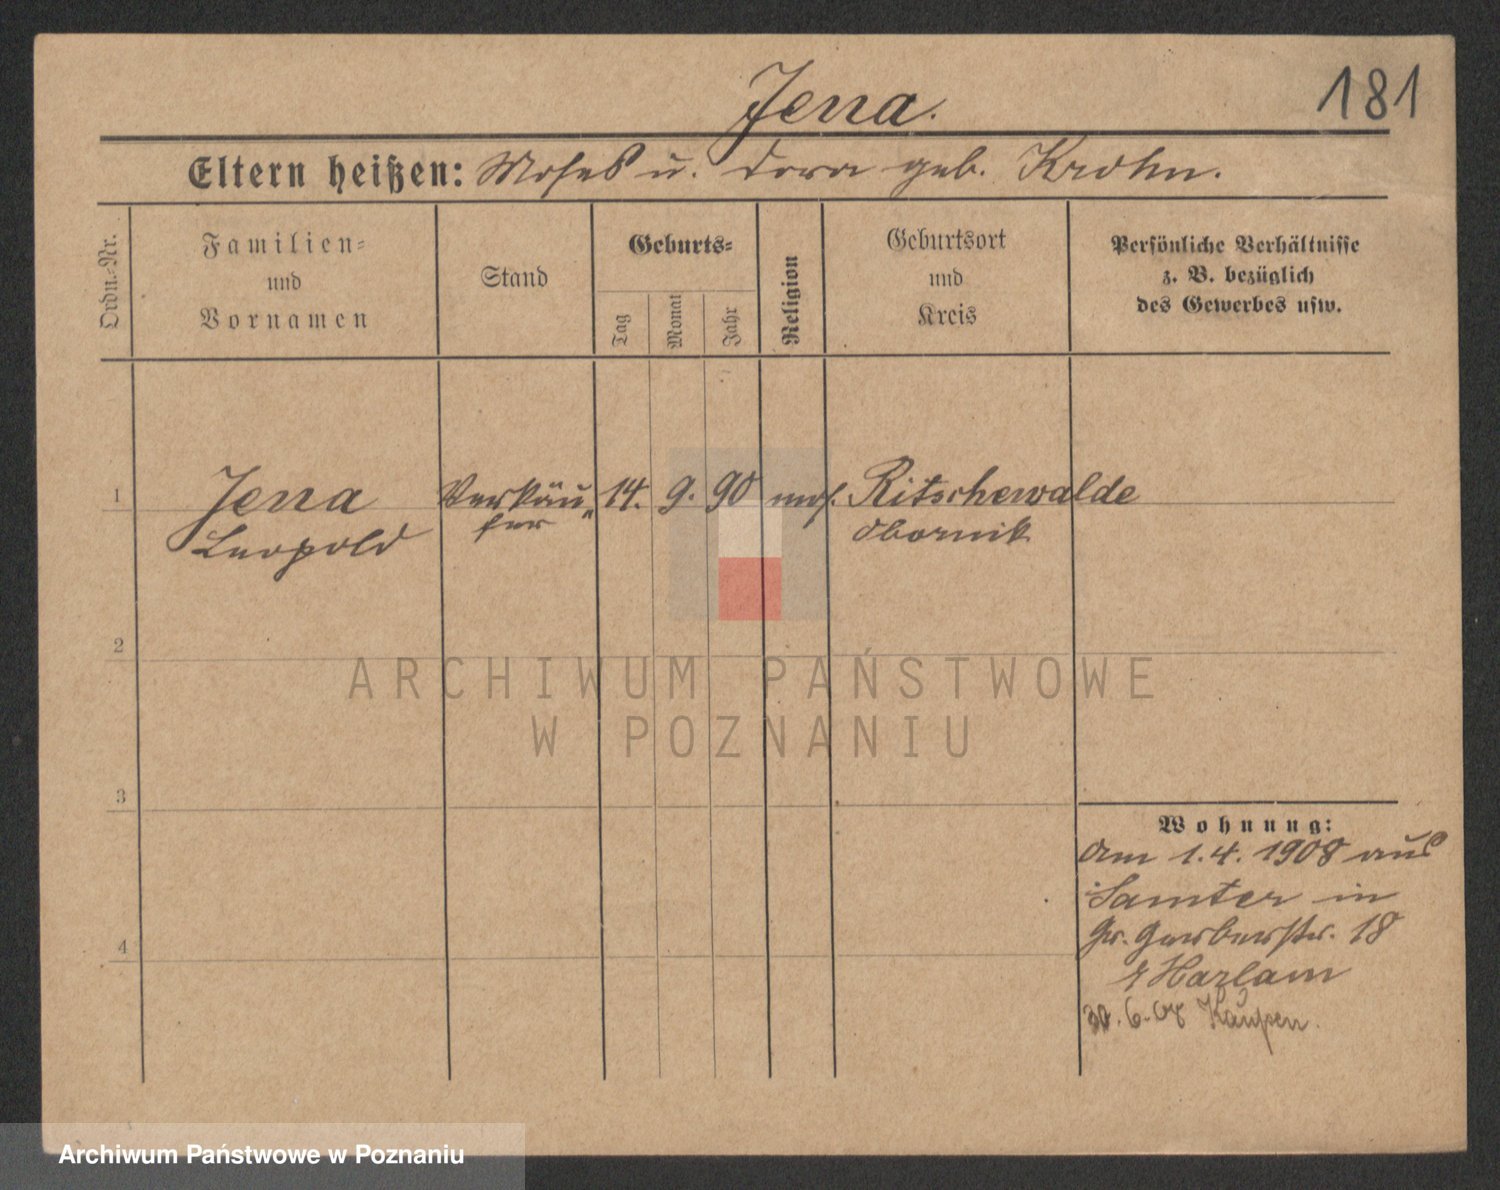 Jena.
181
Eltern heißen: Moses u. Dora geb. Krohn.
Ordn.-Nr.
Familien-
und
Vornamen
Stand
Geburts-
Tag
Monat
Jahr
Religion
Geburtsort
und
Kreis
Persönliche Verhältnisse
z. B. bezüglich
des Gewerbes usw.
1 Jena Verkäu 14. 9. 90 mos. Ritschewalde
Leopold fer Obornik
2
ARCHIWUM PAŃSTWOWE
W POZNANIU
3
Wohnung:
Am 1.4. 1908 aus
Samter in
Gr. Gerberstr. 18
Harlam
4
30.6.08
Archiwum Państwowe w Poznaniu